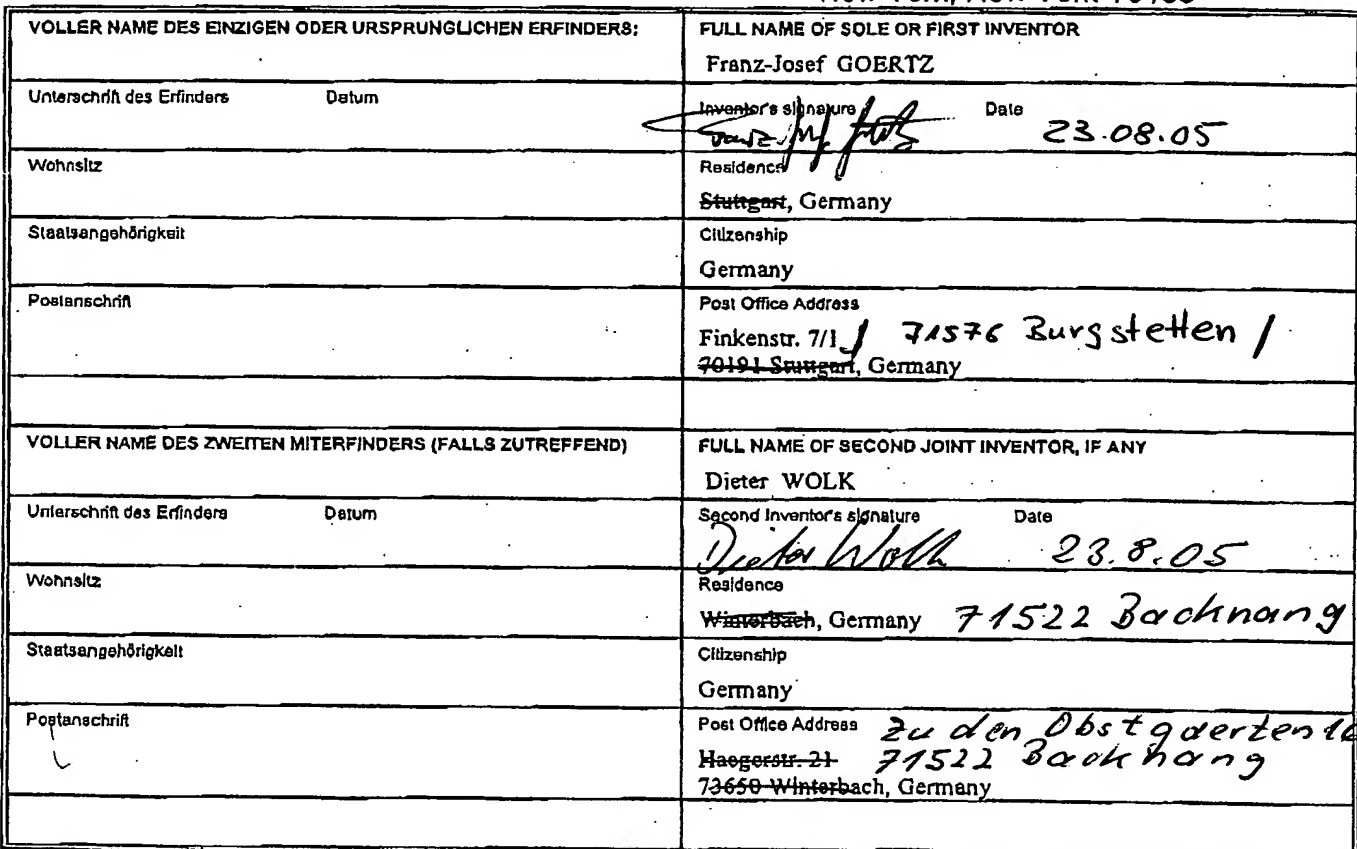 VOLLER NAME DES EINZIGEN ODER URSPRUNGLICHEN ERFINDERS:
FULL NAME OF SOLE OR FIRST INVENTOR
Franz-Josef GOERTZ
Unterschrift des Erfinders Datum
Inventor's signature Date
23.08.05
Wohnsitz
Residence
Stuttgart, Germany
Staatsangehörigkeit
Citizenship
Germany
Postanschrift
Post Office Address
Finkenstr. 7/1 71576 Burgstetten
70191 Stuttgart, Germany
VOLLER NAME DES ZWEITEN MITERFINDERS (FALLS ZUTREFFEND)
FULL NAME OF SECOND JOINT INVENTOR, IF ANY
Dieter WOLK
Unterschrift des Erfinders Datum
Second Inventor's signature Date
Dieter Wolk 23.8.05
Wohnsitz
Residence
Winterbach, Germany 71522 Backnang
Staatsangehörigkeit
Citizenship
Germany
Postanschrift
Post Office Address Zu den Obstgaerten
Haegerstr. 21 71522 Backnang
73650 Winterbach, Germany